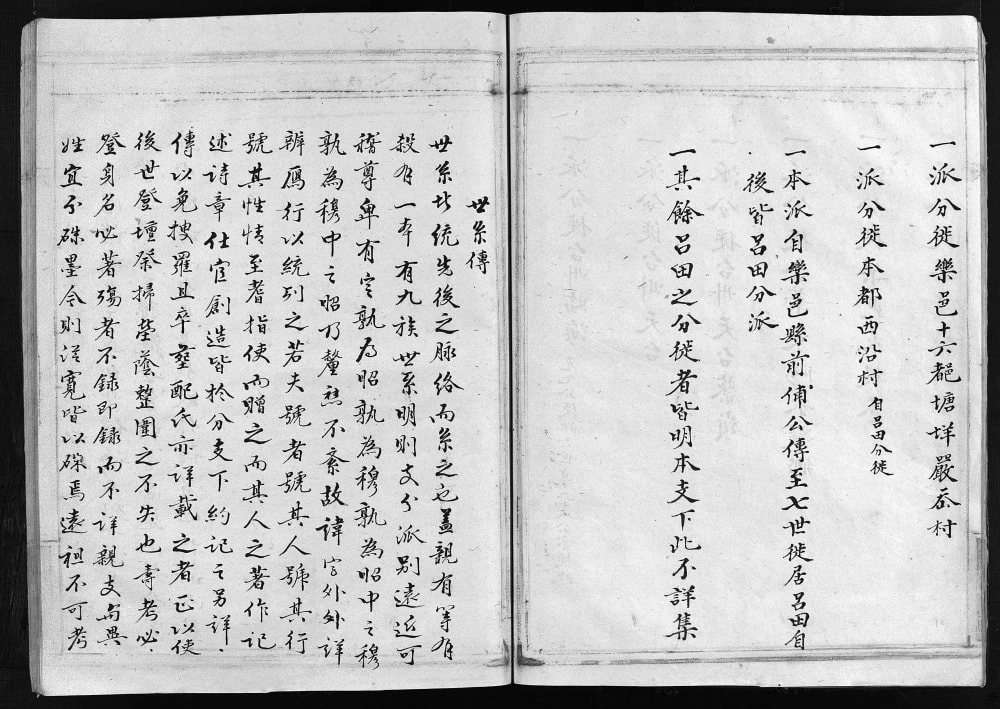 一派分徙樂邑十六都塘垟嚴岙村
一派分徙本都西沿村自呂田分徙
一本派自樂邑縣前俌公傳至七世徙居呂田自
後皆呂田分派
一其餘呂田之分徙者皆明本支下此不詳集
世系傳
世系者統先後之脉絡而系之也蓋親有等有
殺有一本有九族世系明則支分派別遠近可
稽尊卑有定孰為昭孰為穆孰為昭中之穆
孰為穆中之昭乃釐然不紊故諱字外外詳
辨鴈行以統列之若夫號者號其人號其行
號其性情至耆指使而贈之而其人之著作記
述詩章仕官創造皆於分支下約記之另詳
傳以免搜羅且卒塟配氏亦詳載之者正以使
後世登壇祭掃塋蔭整圍之不失也壽考必
登身名必著殤者不録即録而不詳親支與異
姓宜不硃墨今則從寬皆以硃焉遠祖不可考